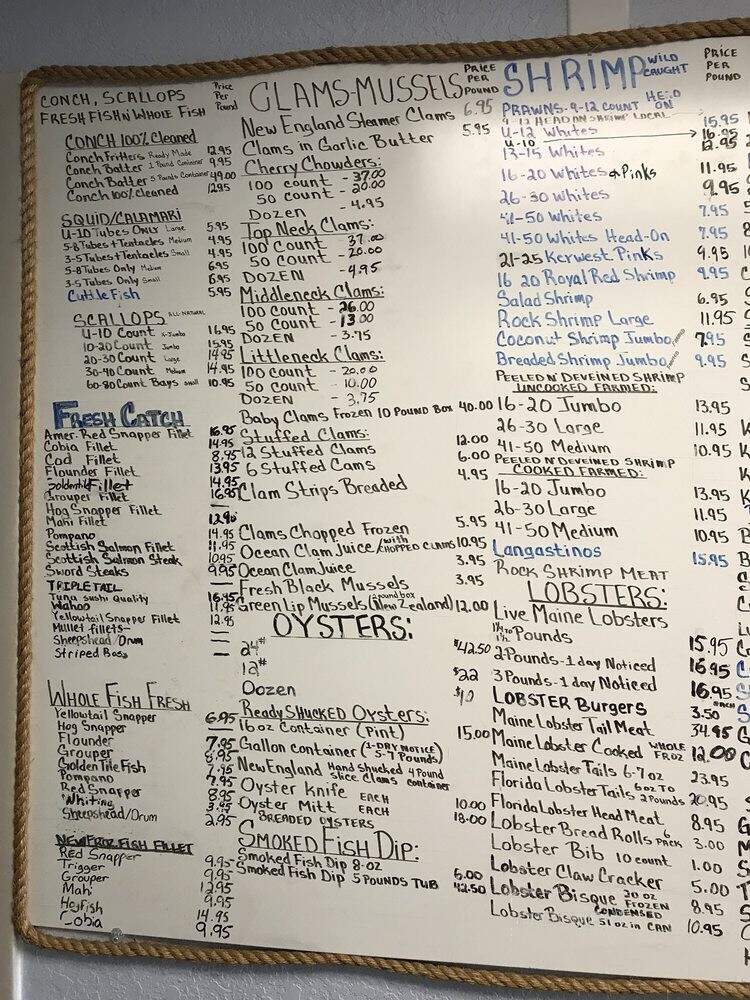 CONCH, SCALLOPS
FRESH FISH N WHOLE FISH
Price Per Pound
CONCH 100% Cleaned
Conch Fritters Ready Made 12.95
Conch Batter 1 Pound Container 9.95
Conch Batter 5 Pounds Container 49.00
Conch 100% cleaned 12.95
SQUID/CALAMARI
U-10 Tubes Only Large 5.95
5-8 Tubes + Tentacles Medium 4.95
3-5 Tubes + Tentacles Small 4.95
5-8 Tubes Only Medium 6.95
3-5 Tubes Only Small 6.95
Cuttle Fish 5.95
SCALLOPS ALL-NATURAL
U-10 Count X-Jumbo 16.95
10-20 Count Jumbo 15.95
20-30 Count Large 14.95
30-40 Count Medium 14.95
60-80 Count Bays small 10.95
FRESH CATCH
Amer. Red Snapper Fillet 16.95
Cobia Fillet 14.95
Cod Fillet 8.95
Flounder Fillet 13.95
Goldentile Fillet 14.95
Grouper Fillet 16.95
Hog Snapper Fillet —
Mahi Fillet 12.90
Pompano 14.95
Scottish Salmon Fillet 11.95
Scottish Salmon Steak 10.95
Sword Steaks 9.95
TRIPLETAIL —
Tuna sushi Quality 16.95
Wahoo 11.95
Yellowtail Snapper Fillet 12.95
Mullet fillets —
Sheepshead/Drum —
Striped Bass —
WHOLE FISH FRESH
Yellowtail Snapper 6.95
Hog Snapper —
Flounder 7.95
Grouper 8.95
Golden Tile Fish 7.95
Pompano 7.95
Red Snapper 8.95
Whiting 3.95
Sheepshead/Drum 2.95
NEW FROZ FISH FILLET
Red Snapper 9.95
Trigger 9.95
Grouper 12.95
Mahi 9.95
Hogfish 14.95
Cobia 9.95
CLAMS-MUSSELS PRICE PER POUND
New England Steamer Clams 6.95
Clams in Garlic Butter 5.95
Cherry Chowders:
100 count - 37.00
50 count - 20.00
Dozen - 4.95
Top Neck Clams:
100 Count - 37.00
50 Count - 20.00
DOZEN - 4.95
Middleneck Clams:
100 Count - 26.00
50 Count - 13.00
DOZEN - 3.75
Littleneck Clams:
100 Count - 20.00
50 Count - 10.00
DOZEN - 3.75
Baby Clams Frozen 10 Pound Box 40.00
Stuffed Clams:
12 Stuffed Clams 12.00
6 Stuffed Cams 6.00
Clam Strips Breaded 4.95
Clams Chopped Frozen 5.95
Ocean Clam Juice (with CHOPPED CLAMS 10.95
Ocean Clam Juice 3.95
Fresh Black Mussels 3.95
Green Lip Mussels (New Zealand) 2 pound box 12.00
OYSTERS:
24# $42.50
12# $22
Dozen $10
Ready SHUCKED Oysters:
16oz Container (Pint) 15.00
Gallon container (1-DAY NOTICE) 5-7 Pounds)
New England Hand shucked 4 Pound slice Clams container
Oyster Knife EACH 10.00
Oyster Mitt EACH 18.00
BREADED OYSTERS
SMOKED FISH DIP:
Smoked Fish Dip 8-oz 6.00
Smoked Fish Dip 5 POUNDS TUB 42.50
SHRIMP WILD CAUGHT
PRICE PER POUND
PRAWNS-9-12 COUNT HEAD ON 15.95
9-12 HEAD ON SHRIMP LOCAL
U-12 Whites 16.95
U-10
13-15 Whites 12.95
16-20 Whites & Pinks 11.95
26-30 Whites 9.95
41-50 Whites 7.95
41-50 Whites Head-On 7.95
21-25 Keywest Pinks 9.95
16 20 Royal Red Shrimp 9.95
Salad Shrimp 6.95
Rock Shrimp Large 11.95
Coconut Shrimp Jumbo 7.95
Breaded Shrimp Jumbo 9.95
PEELED N' DEVEINED SHRIMP
UNCOOKED FARMED:
16-20 Jumbo 13.95
26-30 Large 11.95
41-50 Medium 10.95
PEELED N' DEVEINED SHRIMP
COOKED FARMED:
16-20 Jumbo 13.95
26-30 Large 11.95
41-50 Medium 10.95
Langastinos 15.95
ROCK SHRIMP MEAT
LOBSTERS:
Live Maine Lobsters
1¼ to 1½ Pounds 15.95
2 Pounds-1 day Noticed 16.95
3 Pounds-1 day Noticed 16.95
LOBSTER Burgers EACH 3.50
Maine Lobster Tail Meat 34.95
Maine Lobster Cooked WHOLE FROZ 12.00
Maine Lobster Tails 6-7 oz 23.95
Florida Lobster Tails 6oz TO 2 Pounds 20.95
Florida Lobster Head Meat 8.95
Lobster Bread Rolls 6 PACK 3.00
Lobster Bib 10 count 1.00
Lobster Claw Cracker 5.00
Lobster Bisque 20 oz FROZEN 8.95
Lobster Bisque CONDENSED 51 oz in CAN 10.95